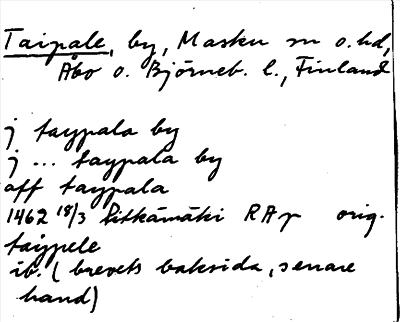 Taipale, by, Masku sn o. hd,
Åbo o. Björneb. l., Finland
j taypala by
j ... taypala by
aff taypala
1462 18/3 Pitkämäki RAp orig.
taypele
ib. (brevets baksida, senare
hand)